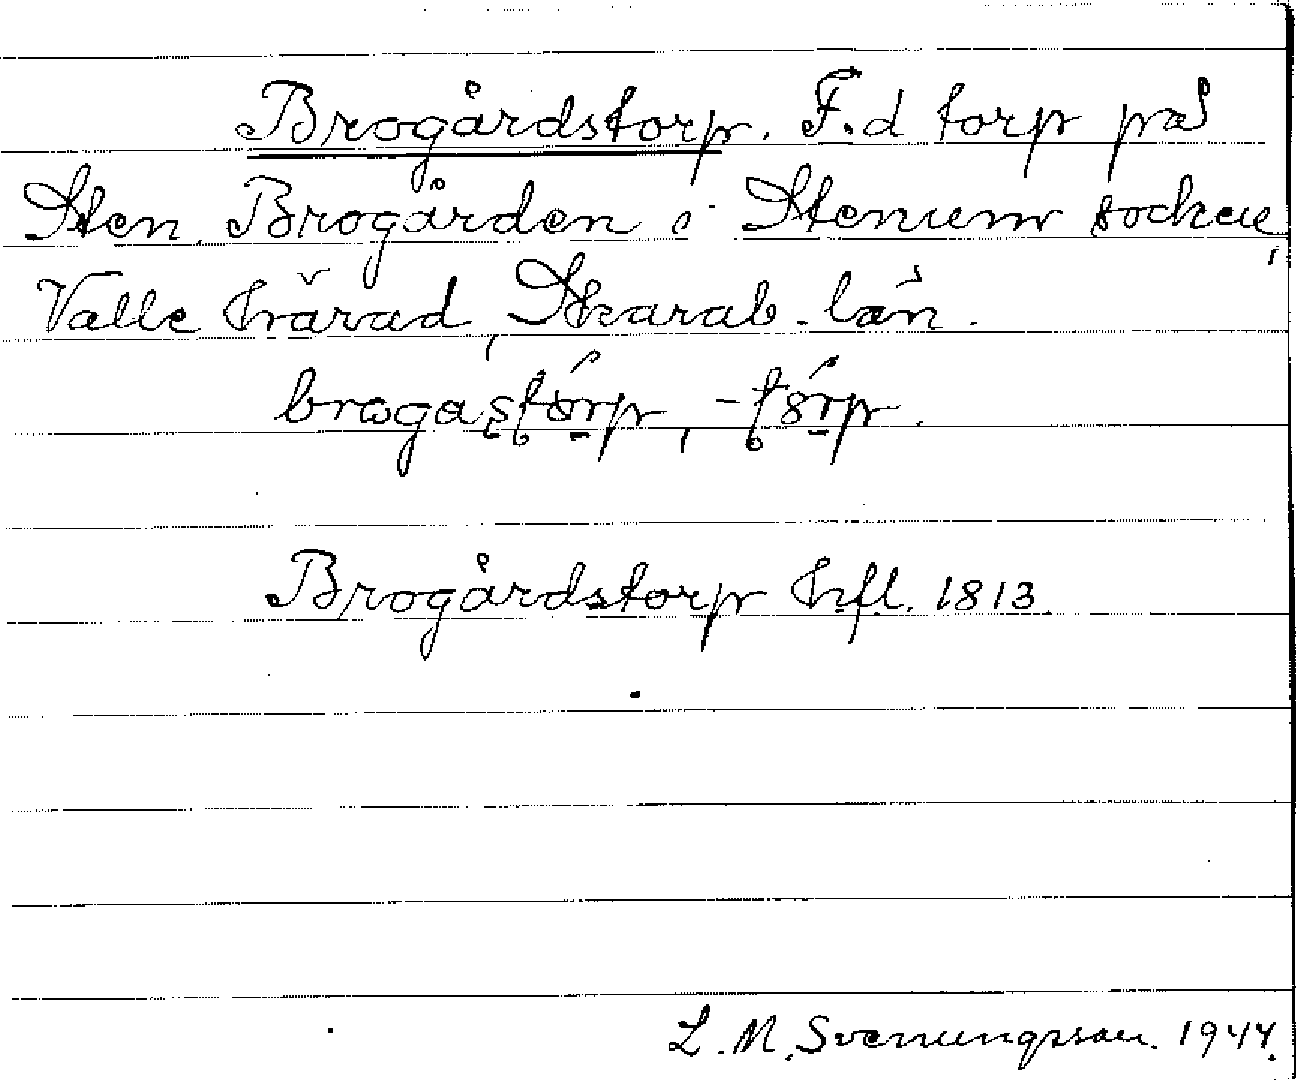 Brogårdstorp. F.d torp på
Sten Brogården i Stenum socken,
Valle härad, Skarab. län.
brogaştǿrp, -tǿrp.
Brogårdstorp hfl. 1813
L. M. Svenungsson. 1944.